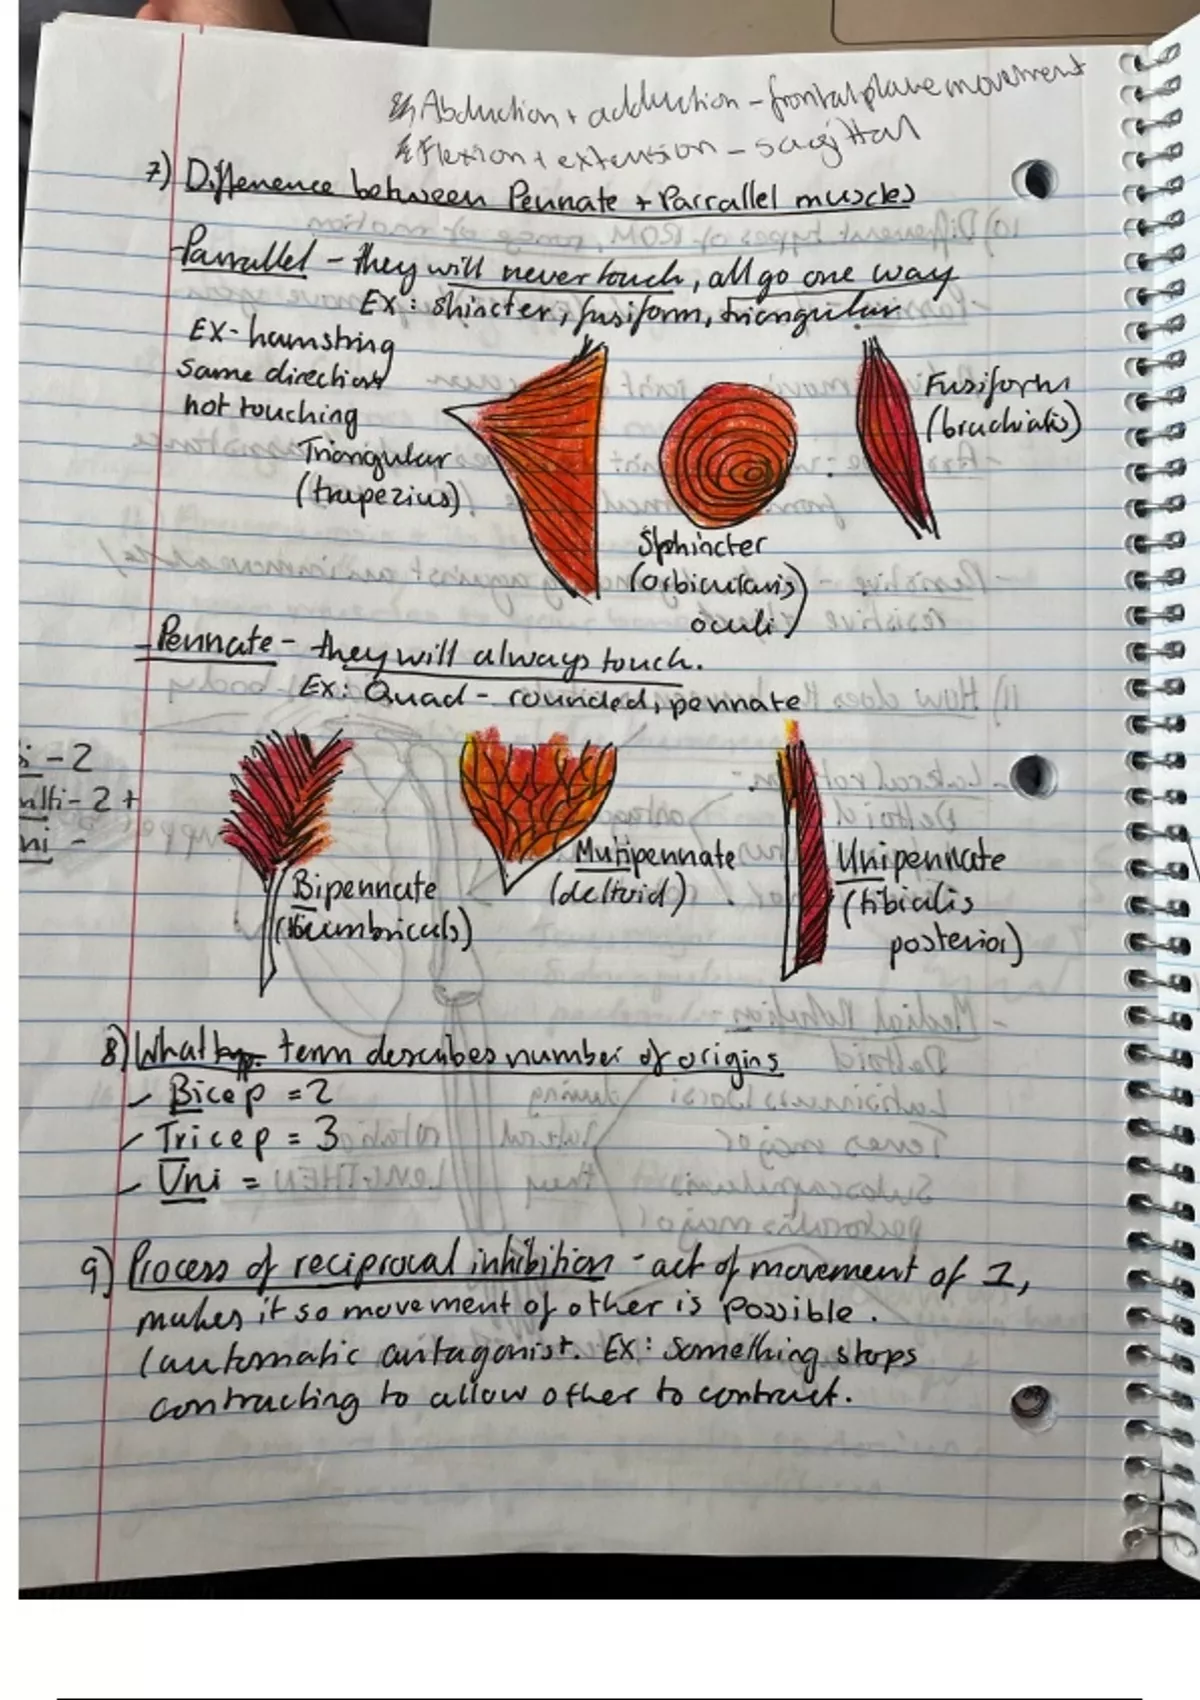 Abduction + adduction - frontal plane movement
Flexion + extension - sagittal
7) Difference between Pennate + Parrallel muscles
- Parrallel - they will never touch, all go one way
Ex: shincter, fusiform, triangular
EX- hamstring
same direction
not touching
Triangular
(trapezius)
Sphincter
(orbicularis)
oculi)
Fusiform
(brachialis)
- Pennate - they will always touch.
Ex: Quad - rounded, pennate
- 2
- 2 +
ni -
Bipennate
(lumbricals)
Multipennate
(deltoid)
Unipennate
(tibialis
posterior)
8) What term describes number of origins
- Bicep = 2
- Tricep = 3
- Uni =
9) Process of reciprocal inhibition - act of movement of 1,
makes it so movement of other is possible.
(automatic antagonist. Ex: something stops
contracting to allow other to contract.